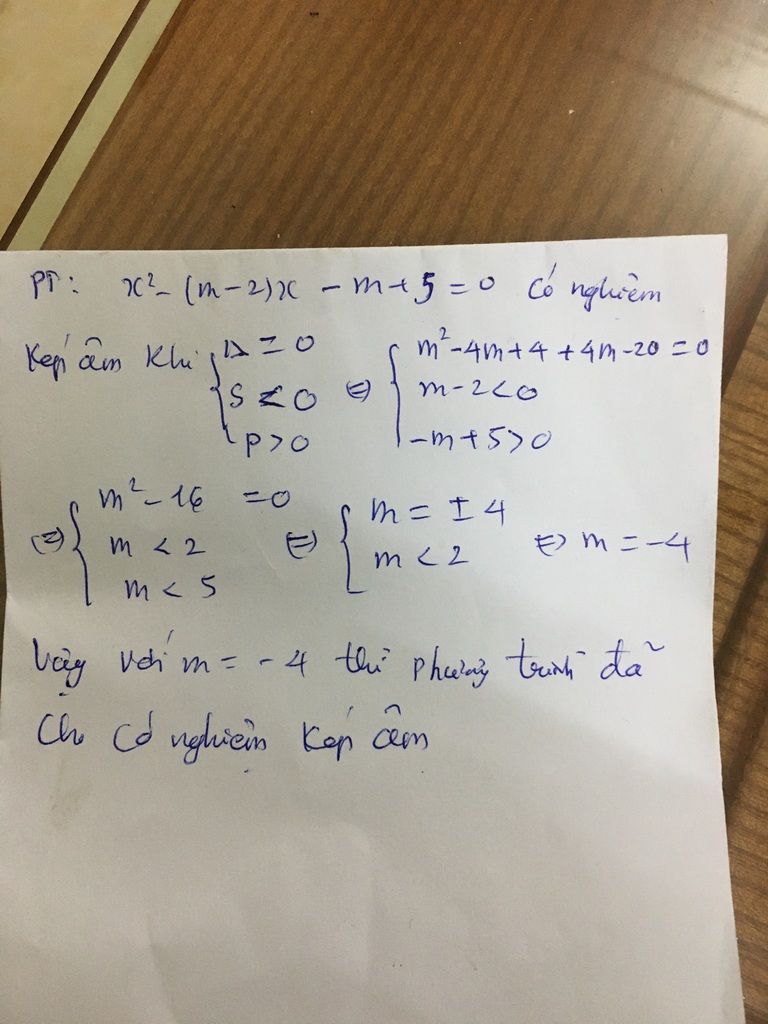 PT: x² - (m-2)x - m + 5 = 0 có nghiệm
kép âm khi { Δ = 0 ⇔ { m² - 4m + 4 + 4m - 20 = 0
S < 0 m - 2 < 0
P > 0 -m + 5 > 0
⇔ { m² - 16 = 0 ⇔ { m = ± 4
m < 2 m < 2 ⇔ m = -4
m < 5
Vậy với m = -4 thì phương trình đã
Cho có nghiệm kép âm